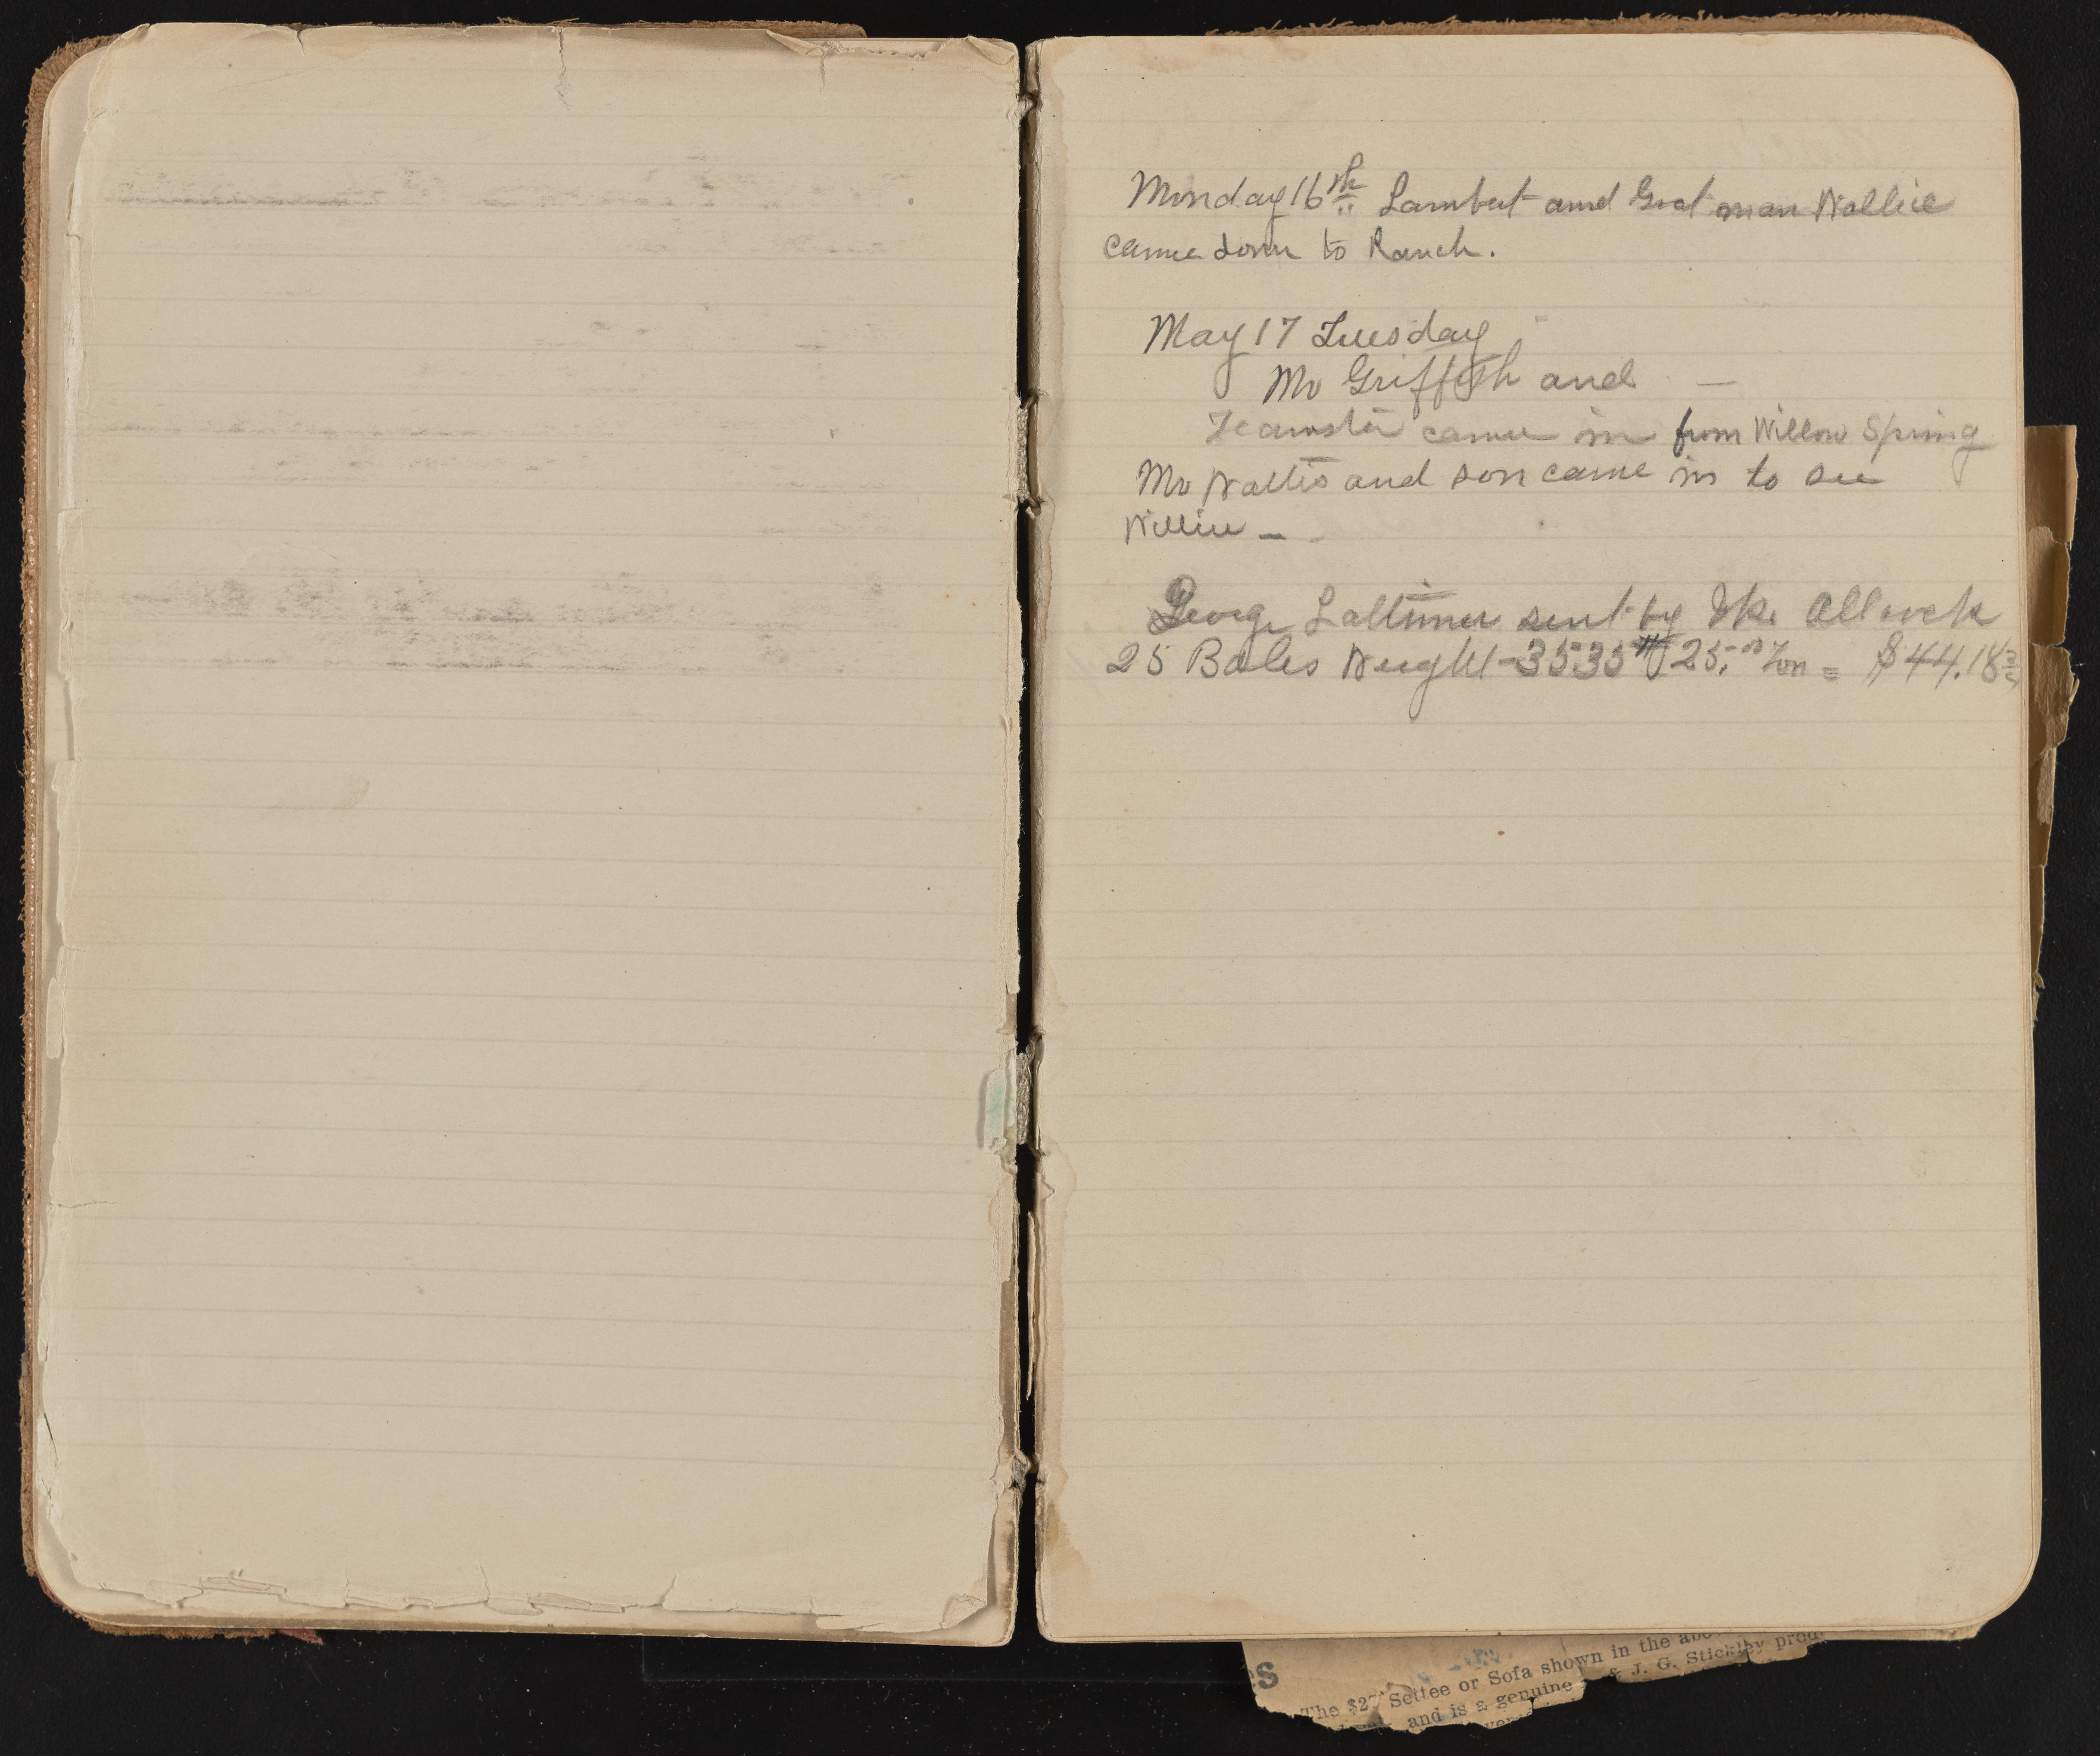 Monday 16th Lambert and Goat man Wallice
came down to Ranch.
May 17 Tuesday
Mr Griffith and —
Teamster came in from Willow Spring
Mr Wallis and son came in to see
Willie —
George Lattimer sent by Ike Allcock
25 Bales Weight-3535# 25.00 Ton = $44.18¾
s
The $27 Settee or Sofa shown in the
and is a genuine & J. G. Stickley